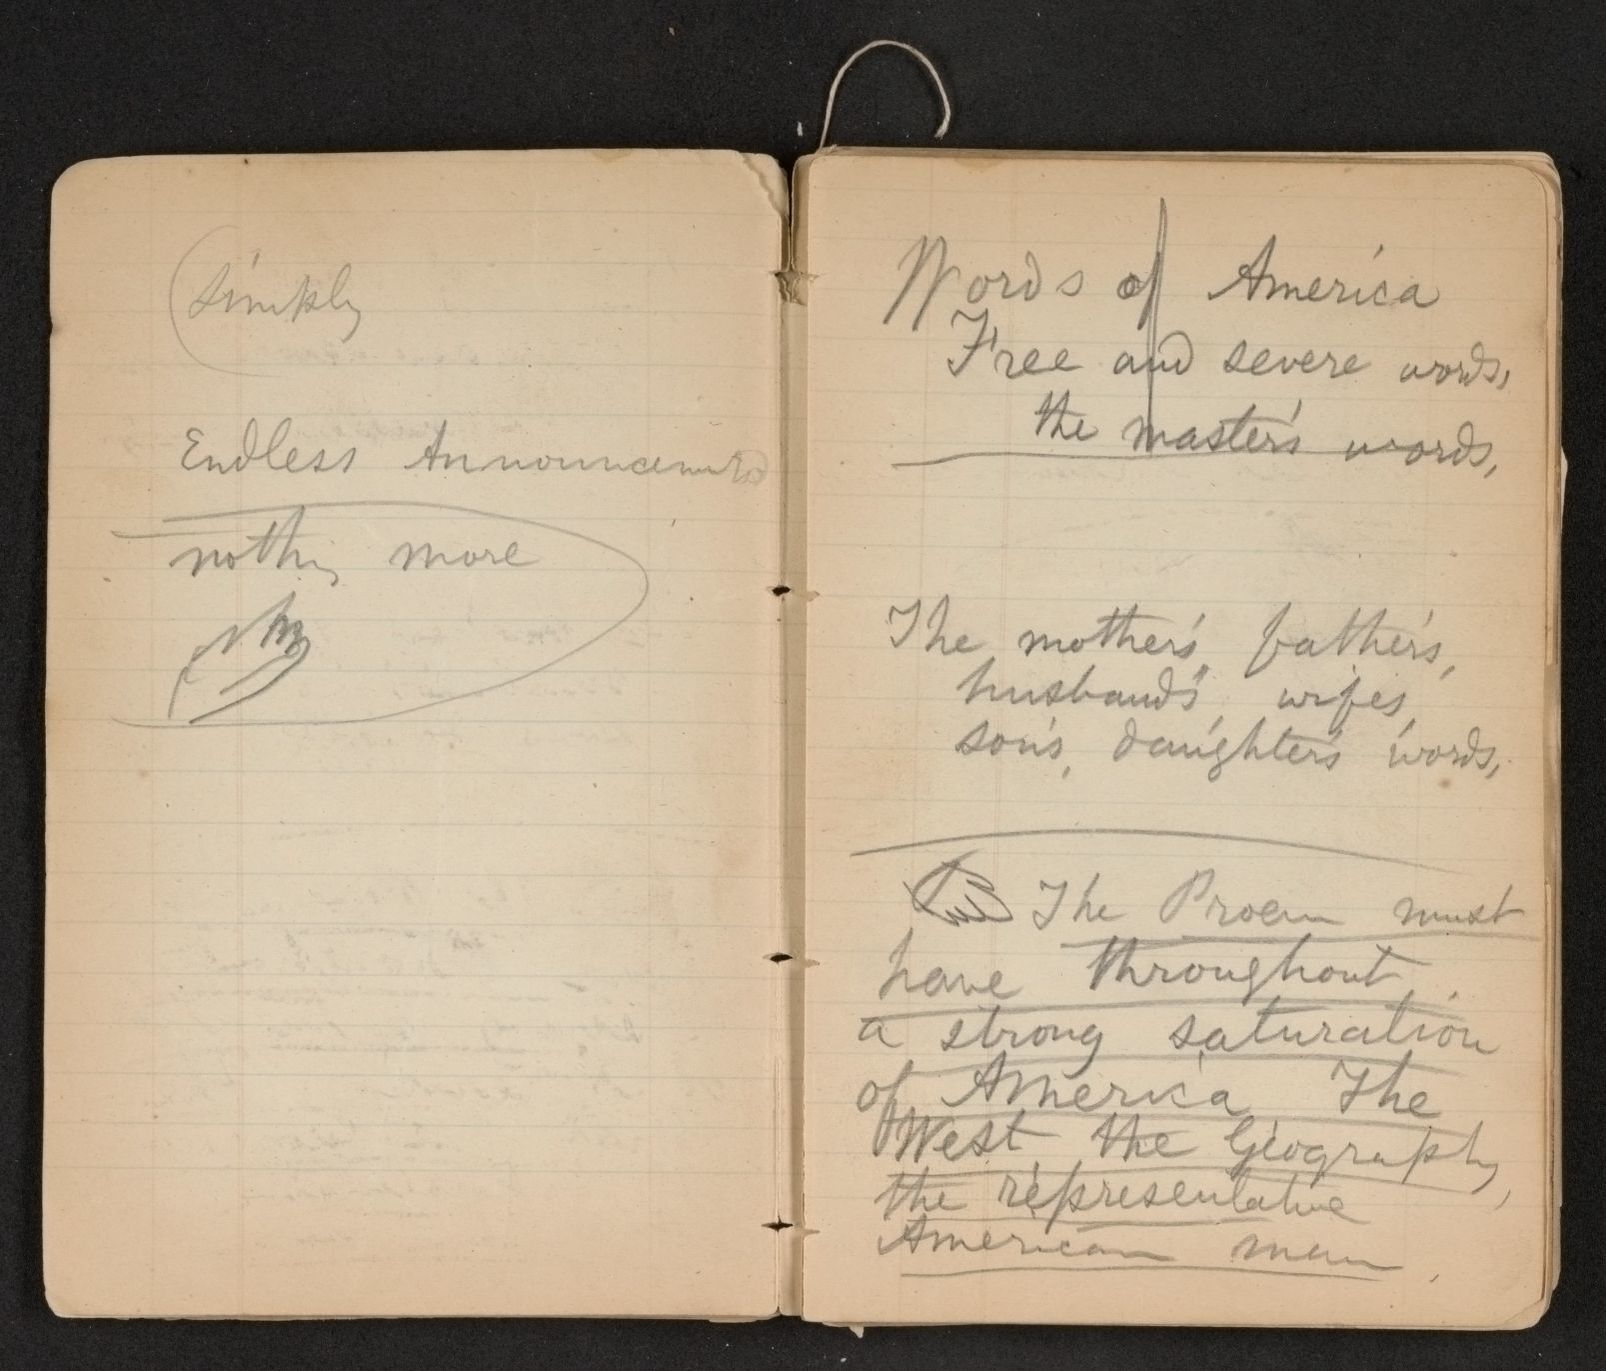 Simply
Endless Announcements
nothing more
Words of America
Free and severe words,
the master's words,
The mother's, father's,
husband's, wife's,
son's, daughter's words,
The Proem must
have throughout
a strong saturation
of America The
West, the Geography,
the representative
American man.